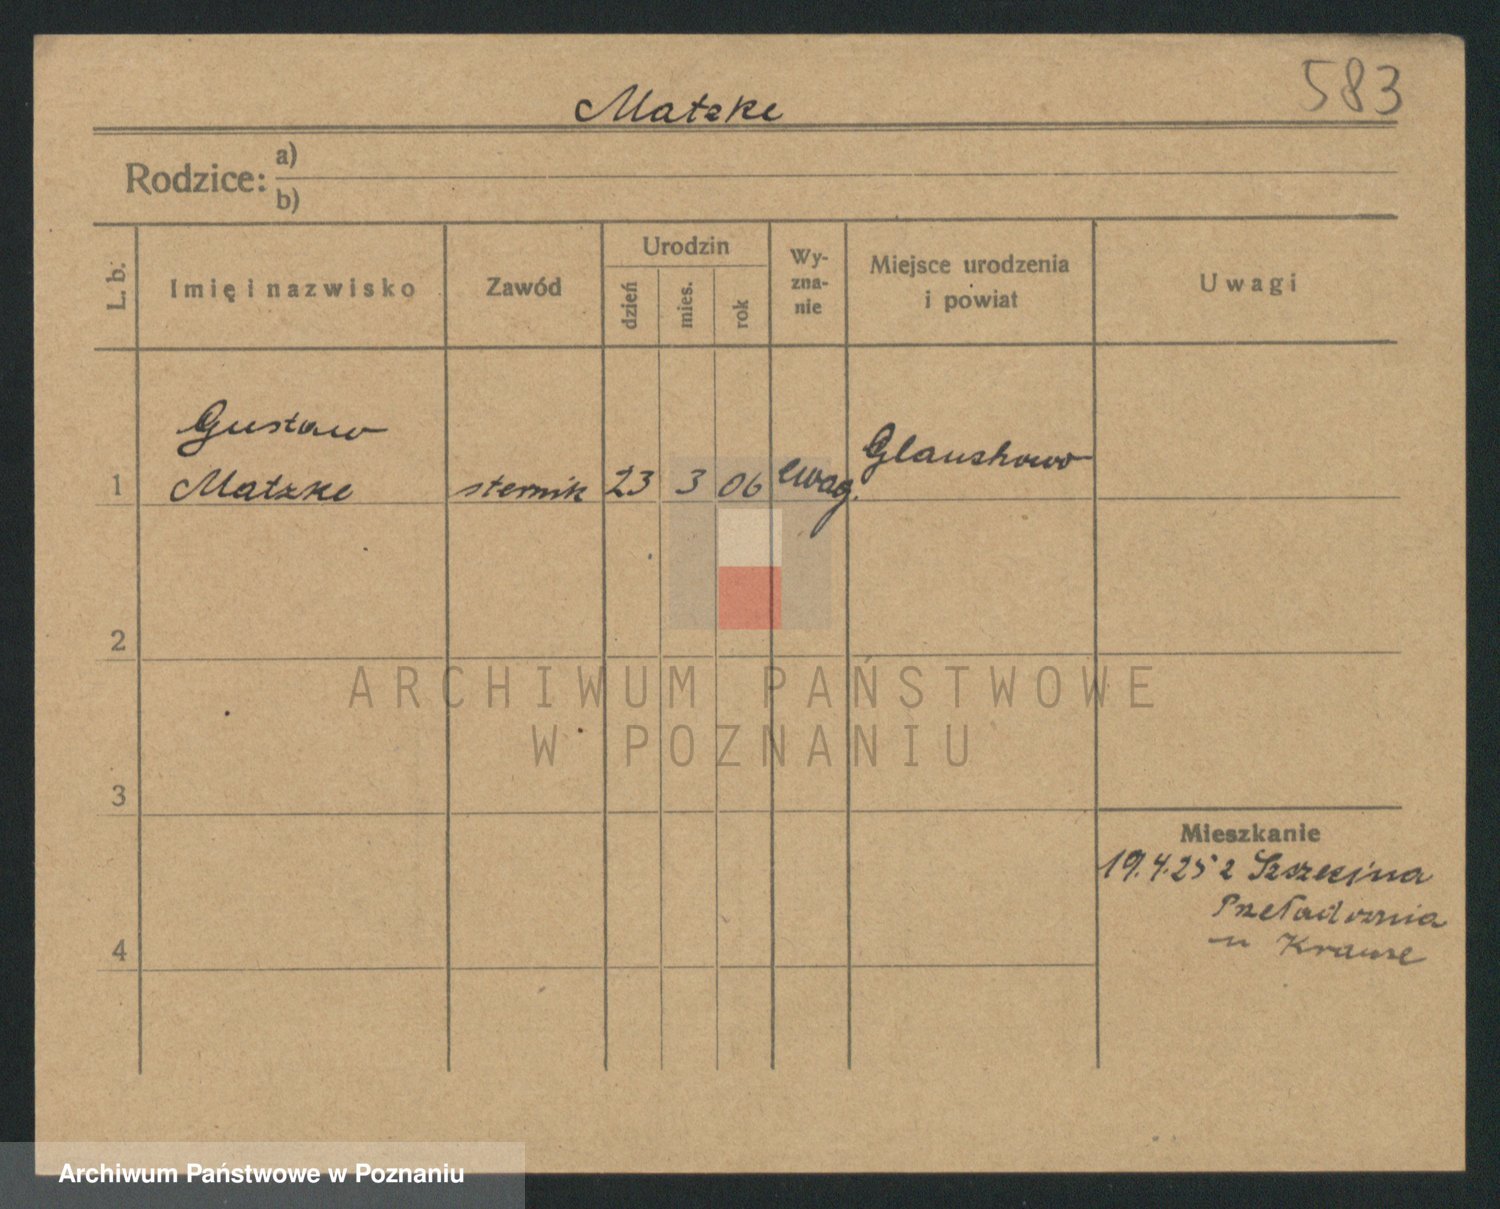 583
Matzke
Rodzice: a)
b)
L. b.
Imię i nazwisko
Zawód
Urodzin
dzień
mies.
rok
Wy-
zna-
nie
Miejsce urodzenia
i powiat
Uwagi
1
Gustaw
Matzke
sternik
23
3
06
ewag.
2
3
4
Mieszkanie
19.4.25 z Szczecina
Przeładownia
u Krause
ARCHIWUM PAŃSTWOWE
W POZNANIU
Archiwum Państwowe w Poznaniu